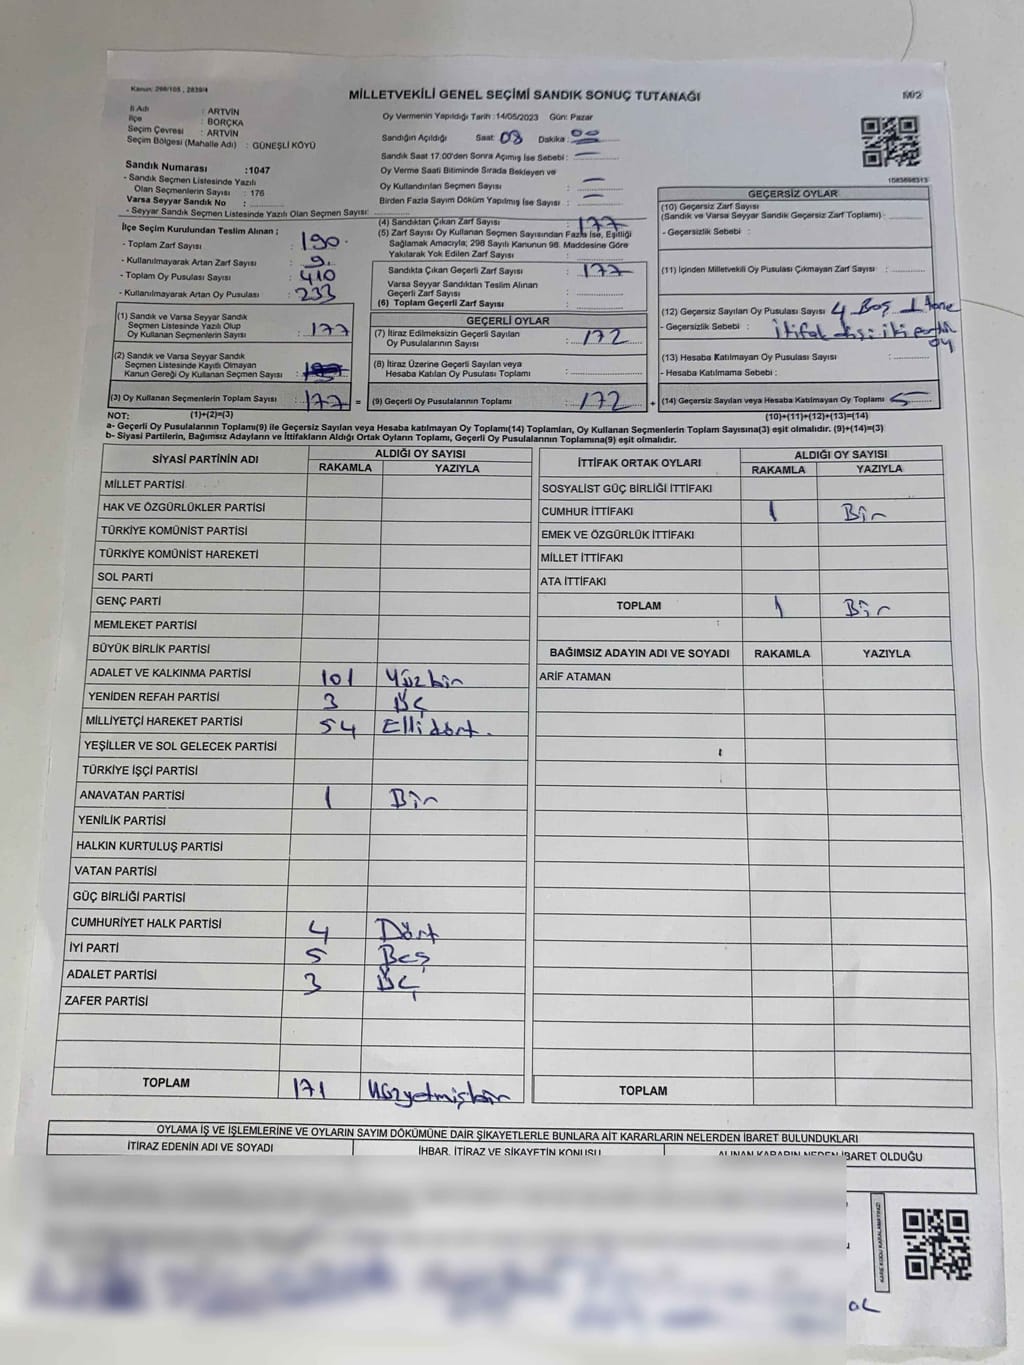 Kanun: 298/105, 2839/4
MİLLETVEKİLİ GENEL SEÇİMİ SANDIK SONUÇ TUTANAĞI
İl Adı : ARTVİN
İlçe : BORÇKA
Seçim Çevresi : ARTVİN
Seçim Bölgesi (Mahalle Adı) : GÜNEŞLİ KÖYÜ
Sandık Numarası :1047
- Sandık Seçmen Listesinde Yazılı
Olan Seçmenlerin Sayısı : 176
Varsa Seyyar Sandık No :
- Seyyar Sandık Seçmen Listesinde Yazılı Olan Seçmen Sayısı:
İlçe Seçim Kurulundan Teslim Alınan ;
- Toplam Zarf Sayısı : 190
- Kullanılmayarak Artan Zarf Sayısı : 9
- Toplam Oy Pusulası Sayısı : 410
- Kullanılmayarak Artan Oy Pusulası : 233
(1) Sandık ve Varsa Seyyar Sandık
Seçmen Listesinde Yazılı Olup
Oy Kullanan Seçmenlerin Sayısı : 177
(2) Sandık ve Varsa Seyyar Sandık
Seçmen Listesinde Kayıtlı Olmayan
Kanun Gereği Oy Kullanan Seçmen Sayısı :
(3) Oy Kullanan Seçmenlerin Toplam Sayısı : 177 =
Oy Vermenin Yapıldığı Tarih :14/05/2023 Gün: Pazar
Sandığın Açıldığı Saat: 08 Dakika : 00
Sandık Saat 17.00'den Sonra Açımış İse Sebebi : —
Oy Verme Saati Bitiminde Sırada Bekleyen ve
Oy Kullandırılan Seçmen Sayısı : —
Birden Fazla Sayım Döküm Yapılmış İse Sayısı : —
(4) Sandıktan Çıkan Zarf Sayısı : 177
(5) Zarf Sayısı Oy Kullanan Seçmen Sayısından Fazla İse, Eşitliği
Sağlamak Amacıyla; 298 Sayılı Kanunun 98. Maddesine Göre
Yakılarak Yok Edilen Zarf Sayısı :
Sandıkta Çıkan Geçerli Zarf Sayısı : 177
Varsa Seyyar Sandıktan Teslim Alınan
Geçerli Zarf Sayısı :
(6) Toplam Geçerli Zarf Sayısı :
GEÇERLİ OYLAR
(7) İtiraz Edilmeksizin Geçerli Sayılan
Oy Pusulalarının Sayısı : 172
(8) İtiraz Üzerine Geçerli Sayılan veya
Hesaba Katılan Oy Pusulası Toplamı :
(9) Geçerli Oy Pusulalarının Toplamı : 172 +
M02
1583698313
GEÇERSİZ OYLAR
(10) Geçersiz Zarf Sayısı
(Sandık ve Varsa Seyyar Sandık Geçersiz Zarf Toplamı) :
- Geçersizlik Sebebi :
(11) İçinden Milletvekili Oy Pusulası Çıkmayan Zarf Sayısı :
(12) Geçersiz Sayılan Oy Pusulası Sayısı : 4 Boş 1 tane
- Geçersizlik Sebebi : oy
(13) Hesaba Katılmayan Oy Pusulası Sayısı :
- Hesaba Katılmama Sebebi :
(14) Geçersiz Sayılan veya Hesaba Katılmayan Oy Toplamı : 5
NOT: (1)+(2)=(3)
(10)+(11)+(12)+(13)=(14)
a- Geçerli Oy Pusulalarının Toplamı(9) ile Geçersiz Sayılan veya Hesaba katılmayan Oy Toplamı(14) Toplamları, Oy Kullanan Seçmenlerin Toplam Sayısına(3) eşit olmalıdır. (9)+(14)=(3)
b- Siyasi Partilerin, Bağımsız Adayların ve İttifakların Aldığı Ortak Oyların Toplamı, Geçerli Oy Pusulalarının Toplamına(9) eşit olmalıdır.
SİYASİ PARTİNİN ADI
ALDIĞI OY SAYISI
RAKAMLA YAZIYLA
MİLLET PARTİSİ
HAK VE ÖZGÜRLÜKLER PARTİSİ
TÜRKİYE KOMÜNİST PARTİSİ
TÜRKİYE KOMÜNİST HAREKETİ
SOL PARTİ
GENÇ PARTİ
MEMLEKET PARTİSİ
BÜYÜK BİRLİK PARTİSİ
ADALET VE KALKINMA PARTİSİ 101 Yüzbir
YENİDEN REFAH PARTİSİ 3 Üç
MİLLİYETÇİ HAREKET PARTİSİ 54 Elli dört.
YEŞİLLER VE SOL GELECEK PARTİSİ
TÜRKİYE İŞÇİ PARTİSİ
ANAVATAN PARTİSİ 1 Bir
YENİLİK PARTİSİ
HALKIN KURTULUŞ PARTİSİ
VATAN PARTİSİ
GÜÇ BİRLİĞİ PARTİSİ
CUMHURİYET HALK PARTİSİ 4 Dört
İYİ PARTİ 5 Beş
ADALET PARTİSİ 3 Üç
ZAFER PARTİSİ
TOPLAM 171 Yüzyetmişbir
İTTİFAK ORTAK OYLARI
ALDIĞI OY SAYISI
RAKAMLA YAZIYLA
SOSYALİST GÜÇ BİRLİĞİ İTTİFAKI
CUMHUR İTTİFAKI 1 Bir
EMEK VE ÖZGÜRLÜK İTTİFAKI
MİLLET İTTİFAKI
ATA İTTİFAKI
TOPLAM 1 Bir
BAĞIMSIZ ADAYIN ADI VE SOYADI RAKAMLA YAZIYLA
ARİF ATAMAN
TOPLAM
OYLAMA İŞ VE İŞLEMLERİNE VE OYLARIN SAYIM DÖKÜMÜNE DAİR ŞİKAYETLERLE BUNLARA AİT KARARLARIN NELERDEN İBARET BULUNDUKLARI
İTİRAZ EDENİN ADI VE SOYADI
İHBAR, İTİRAZ VE ŞİKAYETİN KONUSU
ALINAN KARARIN NEDEN İBARET OLDUĞU
KARE KODU KARALAMAYINIZ!